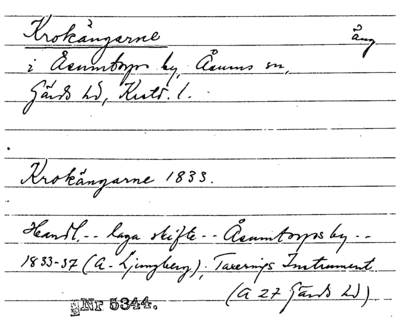 Krokängarne äng
i Åsumtorps by, Åsums sn,
Gärds hd, Krsts. l.
Krokängarne 1833.
Handl. -- laga skifte -- Åsumtorps by --
1833-37 (A. Ljungberg); Taxerings Instrument
(A 27 Gärds hd)
Nr 5344.